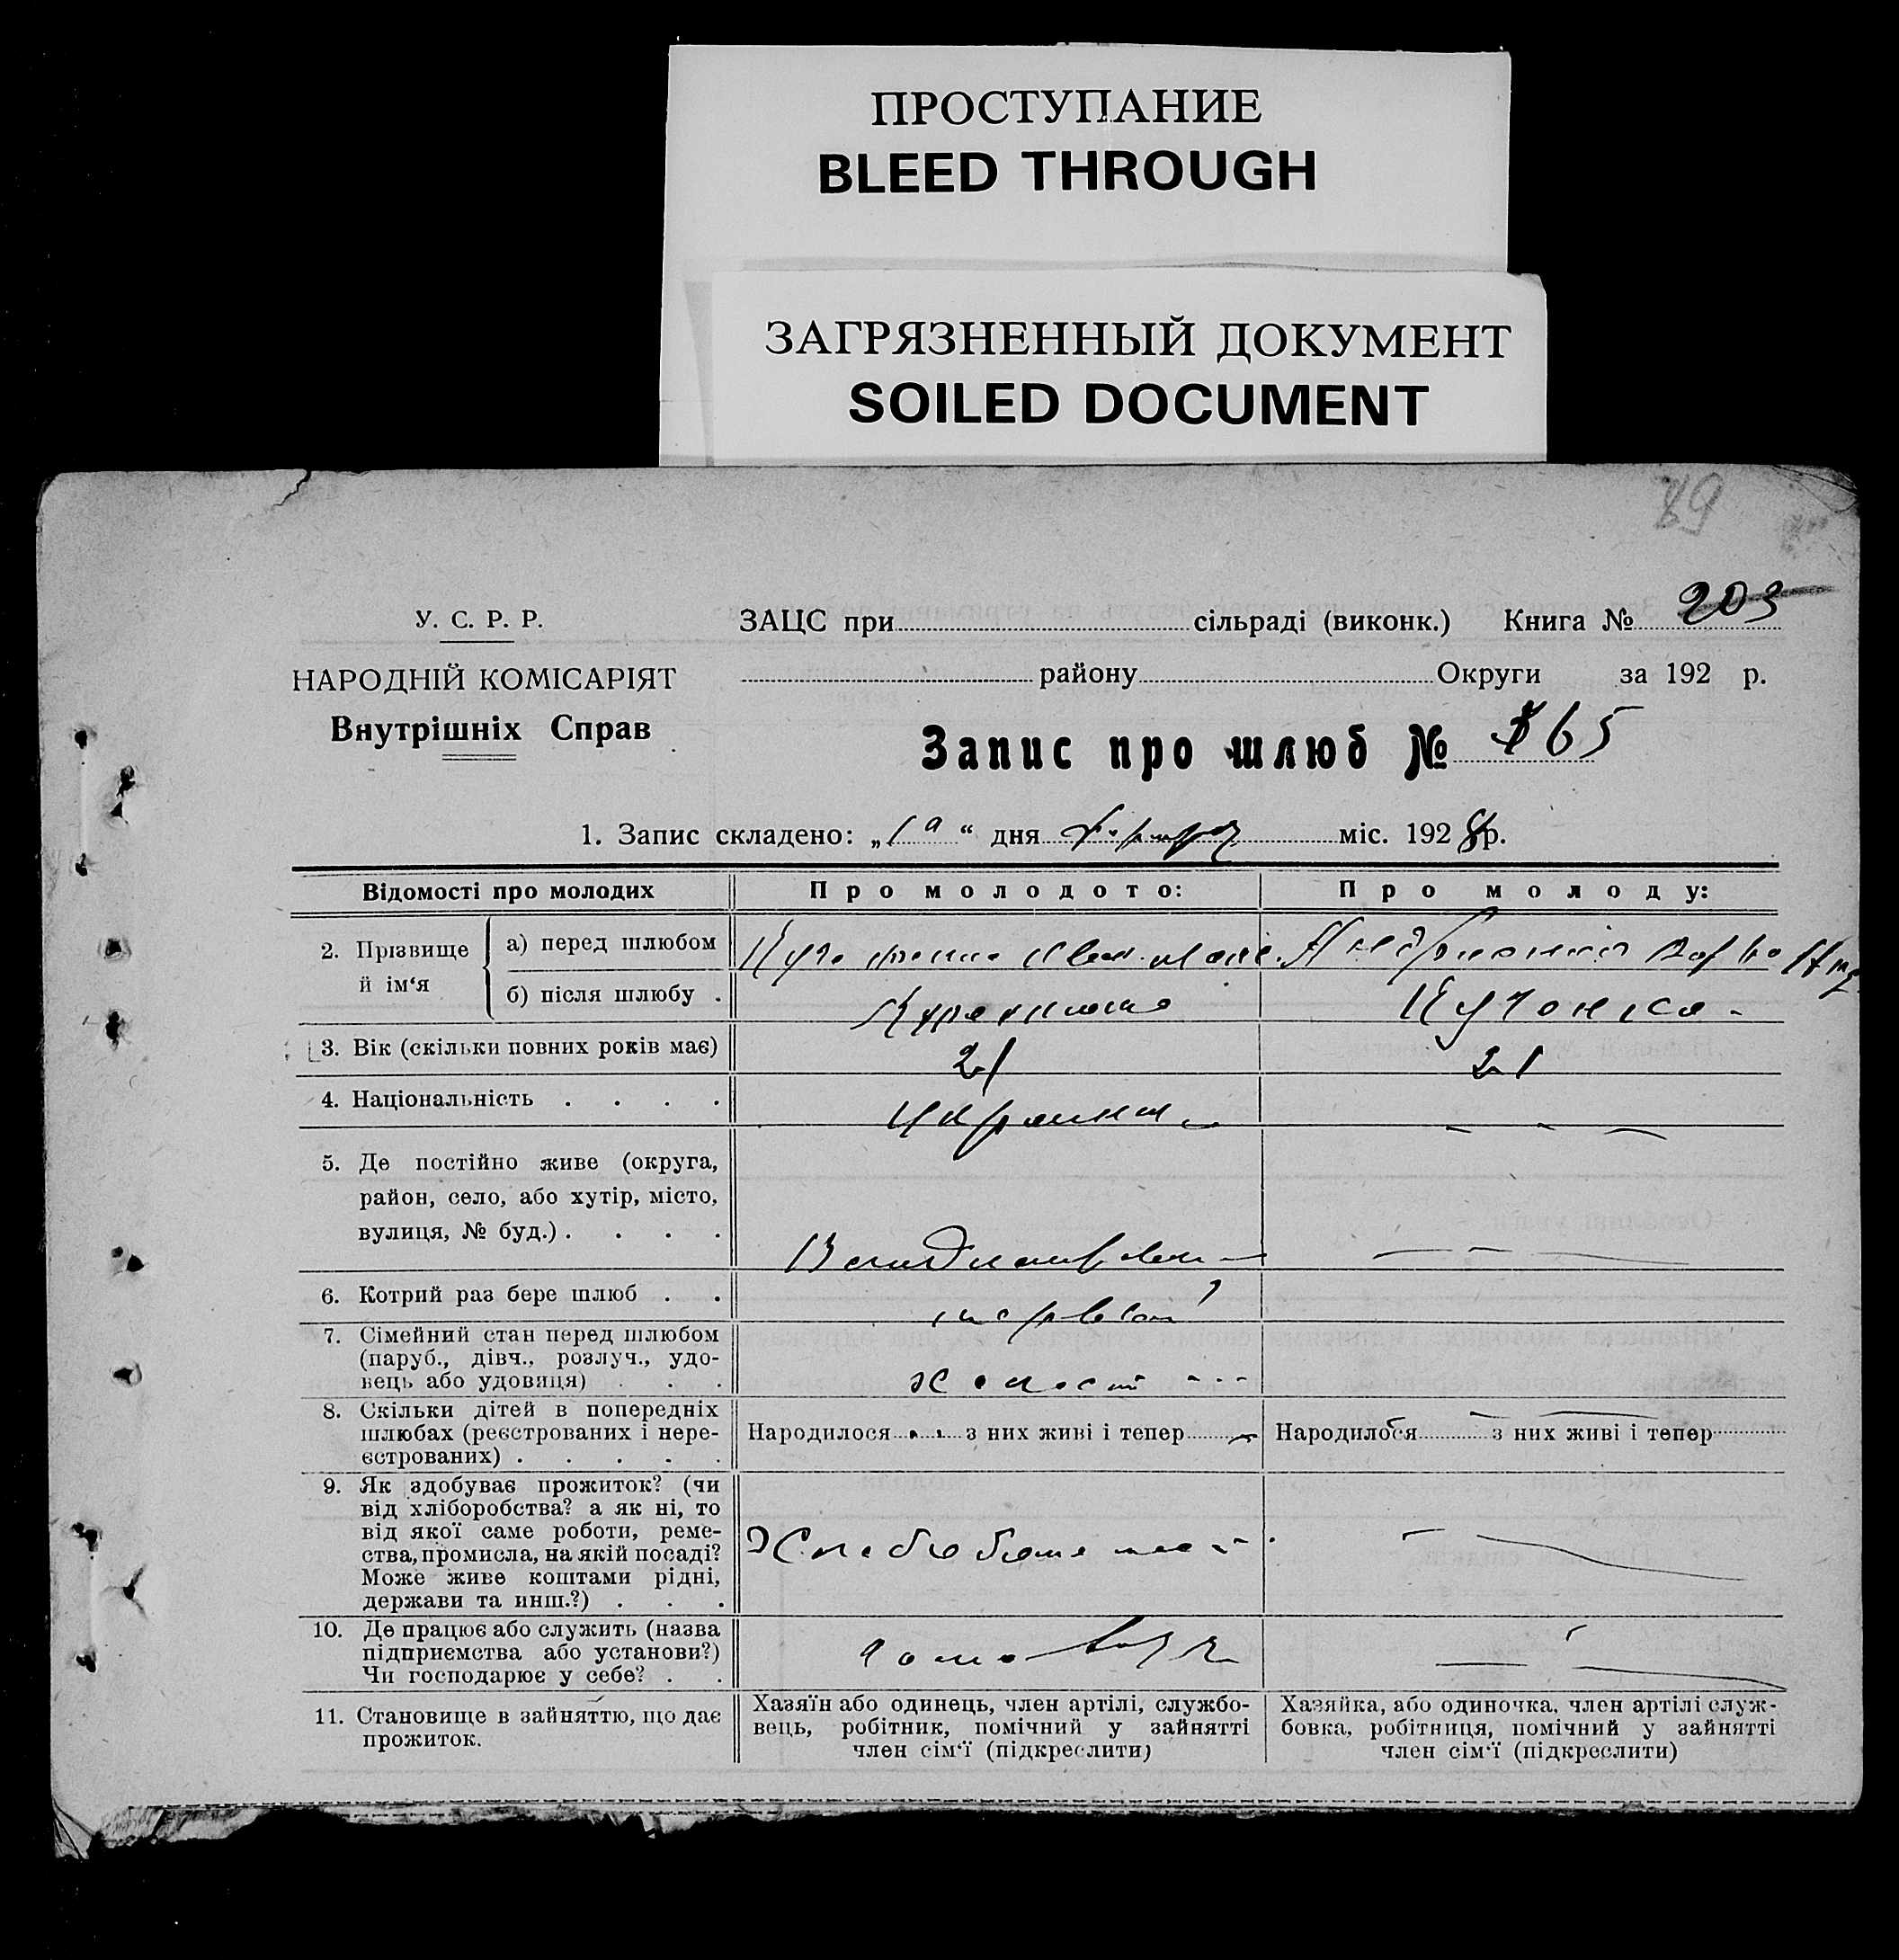 ПРОСТУПАНИЕ
BLEED THROUGH
ЗАГРЯЗНЕННЫЙ ДОКУМЕНТ
SOILED DOCUMENT
89
У. С. Р. Р.
ЗАЦС при сільраді (виконк.) Книга № 203
НАРОДНІЙ КОМІСАРІЯТ
району Округи за 192 р.
Внутрішніх Справ
Запис про шлюб № 165
1. Запис складено: „1а“ дня міс. 1928 р.
Відомості про молодих
Про молодого:
Про молоду:
2. Прізвище й ім‘я
а) перед шлюбом
б) після шлюбу .
Кученка
3. Вік (скільки повних років має)
21
21
4. Національність . . . .
5. Де постійно живе (округа,
район, село, або хутір, місто,
вулиця, № буд.) . . . .
6. Котрий раз бере шлюб . .
7. Сімейний стан перед шлюбом
(паруб., дівч., розлуч., удо-
вець або удовиця) . . .
холост
8. Скільки дітей в попередніх
шлюбах (реєстрованих і нере-
єстрованих) . . . . .
Народилося з них живі і тепер
Народилося з них живі і тепер
9. Як здобуває прожиток? (чи
від хліборобства? а як ні, то
від якої саме роботи, реме-
ства, промисла, на якій посаді?
Може живе коштами рідні,
держави та инш.?) . . .
10. Де працює або служить (назва
підприємства або установи?)
Чи господарює у себе? . .
11. Становище в зайняттю, що дає
прожиток.
Хазяїн або одинець, член артілі, службо-
вець, робітник, помічний у зайнятті
член сім‘ї (підкреслити)
Хазяйка, або одиночка, член артілі служ-
бовка, робітниця, помічний у зайнятті
член сім‘ї (підкреслити)